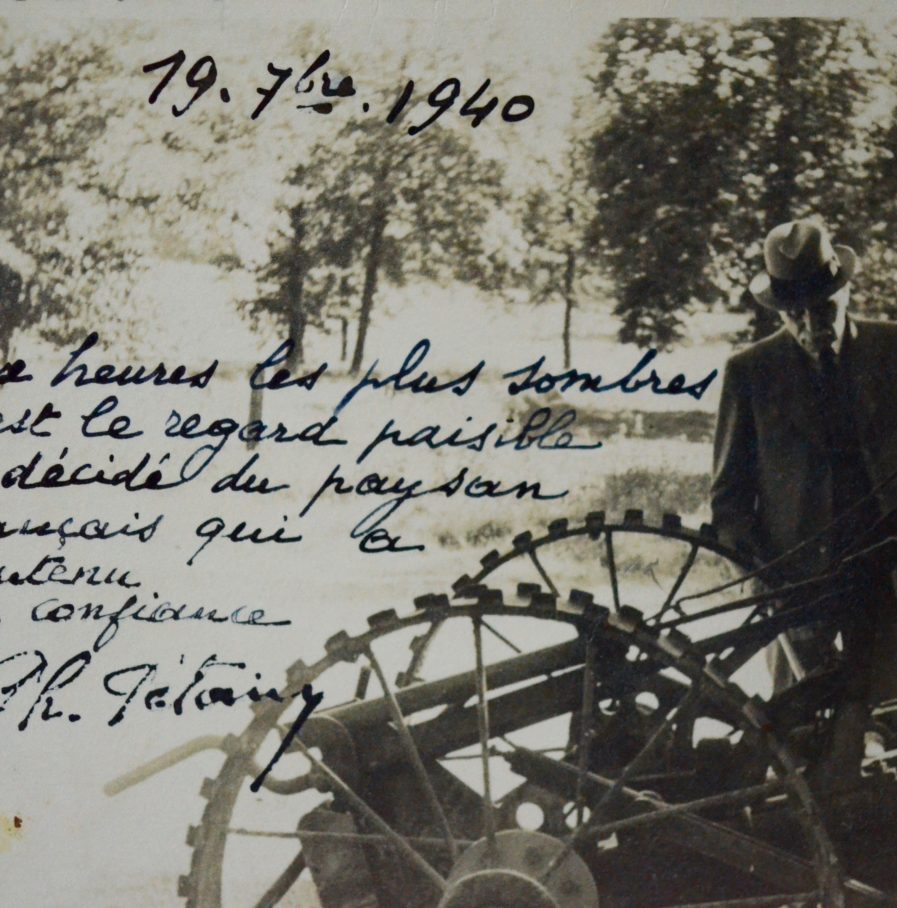 19. 7bre. 1940
heures les plus sombres
est le regard paisible
décidé du paysan
ançais qui a
utenu
confiance
Ph. Pétain